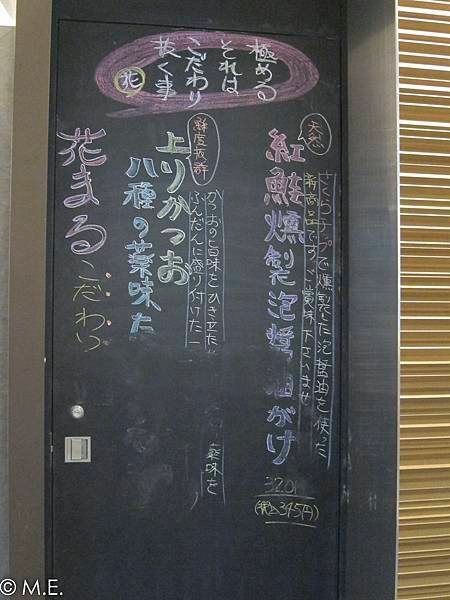 極める
それは、
こだわり
抜く事
花
天然
紅鮭燻製泡醤油がけ
さくらチップで燻製した泡醤油を使った
新商品です。ご賞味下さいませ
320
(税込345円)
鮮度抜群
上りかつお
八種の薬味た
かつおの旨味をひき立た
ふんだんに盛り付けた一
薬味を
花まる
こだわり
© M.E.